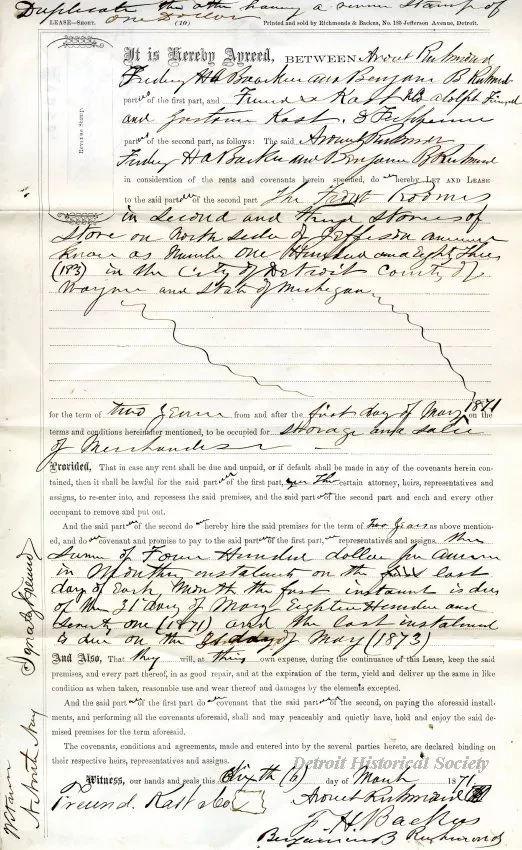 Duplicate the other having a revenue stamp of
one Dollar
LEASE—SHORT. (10) Printed and sold by Richmonds & Backus, No. 185 Jefferson Avenue, Detroit.
REVENUE STAMP.
It is Hereby Agreed, BETWEEN Richmond
H Backus and Benjamin B Richmond
parties of the first part, and Freund & Kast Adolph Freund
and Gustave Kast
parties of the second part, as follows: The said Richmond
H Backus and Benjamin B Richmond
in consideration of the rents and covenants herein specified, do hereby LET AND LEASE
to the said parties of the second part The Front Rooms
in Second and third Stories of
Store on North side of Jefferson avenue
Known as Number One Hundred and Eighty Three
(183) in the City of Detroit County of
Wayne and State of Michigan
for the term of two years from and after the first day of May 1871 on the
terms and conditions hereinafter mentioned, to be occupied for storage and sale
of Merchandise
Provided, That in case any rent shall be due and unpaid, or if default shall be made in any of the covenants herein con-
tained, then it shall be lawful for the said parties of the first part, certain attorney, heirs, representatives and
assigns, to re-enter into, and repossess the said premises, and the said parties of the second part and each and every other
occupant to remove and put out.
And the said parties of the second do hereby hire the said premises for the term of Two Years as above mention-
ed, and do covenant and promise to pay to the said parties of the first part, representatives and assigns the
sum of Four Hundred dollar per annum
in Monthly instalments on the last
day of Each Month the first instalment is due
of the 31 day of May Eighteen Hundred and
Seventy one (1871) and the last instalment
is due on the day of May (1873)
And Also, That they will, at their own expense, during the continuance of this Lease, keep the said
premises, and every part thereof, in as good repair, and at the expiration of the term, yield and deliver up the same in like
condition as when taken, reasonable use and wear thereof and damages by the elements excepted.
And the said parties of the first part do covenant that the said parties of the second, on paying the aforesaid install-
ments, and performing all the covenants aforesaid, shall and may peaceably and quietly have, hold and enjoy the said de-
mised premises for the term aforesaid.
The covenants, conditions and agreements, made and entered into by the several parties hereto, are declared binding on
their respective heirs, representatives and assigns.
Witness, our hands and seals this Sixth (6) day of March 1871.
Freund Kast & Co
Richmond
F H Backus
Benjamin B Richmond
Ignatz Freund
Detroit Historical Society